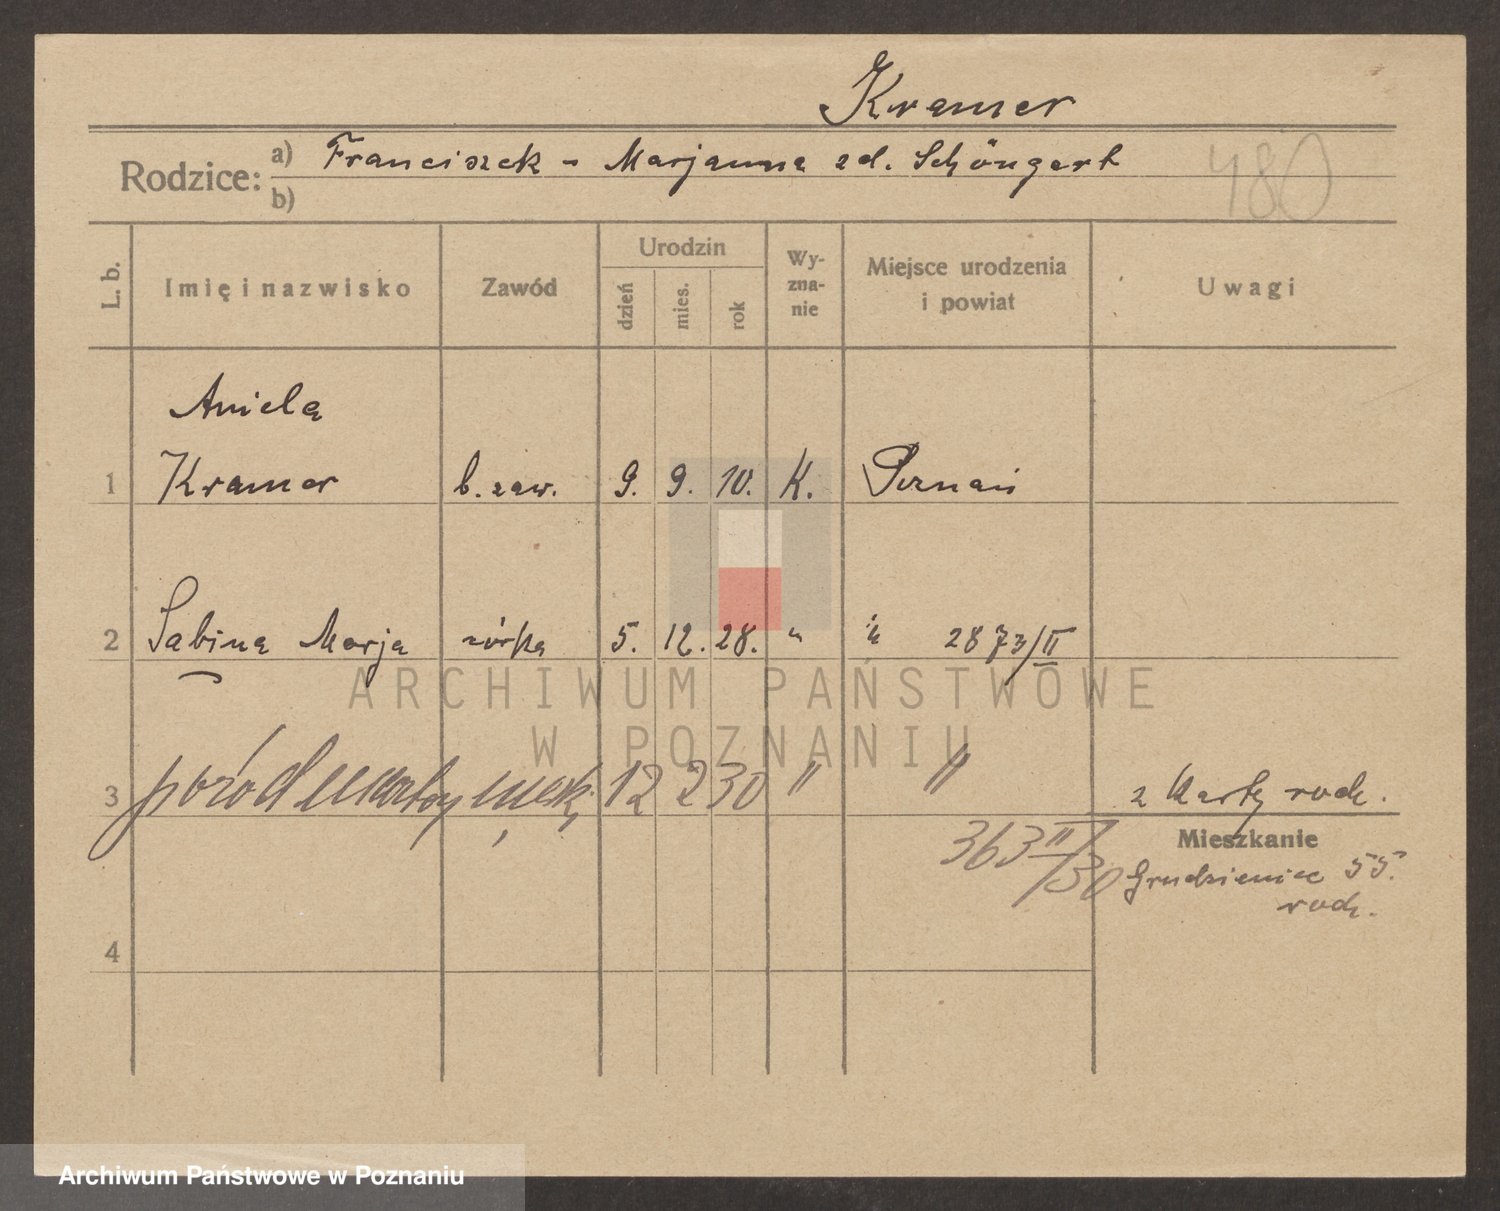 Kramer
Rodzice: a) Franciszek - Marjanna zd. Schöngart
b)
480
L. b. Imię i nazwisko Zawód Urodzin dzień mies. rok Wyzna-nie Miejsce urodzenia i powiat Uwagi
Aniela
1 Kramer b. zaw. 9. 9. 10. K. Poznań
2 Sabina Marja córka 5. 12. 28. " " 2873/II
ARCHIWUM PAŃSTWOWE
W POZNANIU
3 poród martwy męsk. 12 2 30 " " z karty rodz.
363 II/30
Mieszkanie
Grudzieniec 55.
rodz.
4
Archiwum Państwowe w Poznaniu